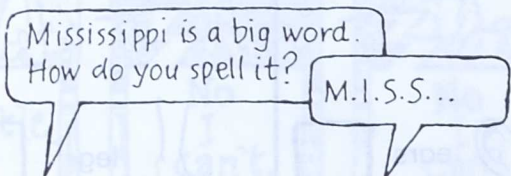 Mississippi is a big word.
How do you spell it?
M.I.S.S...